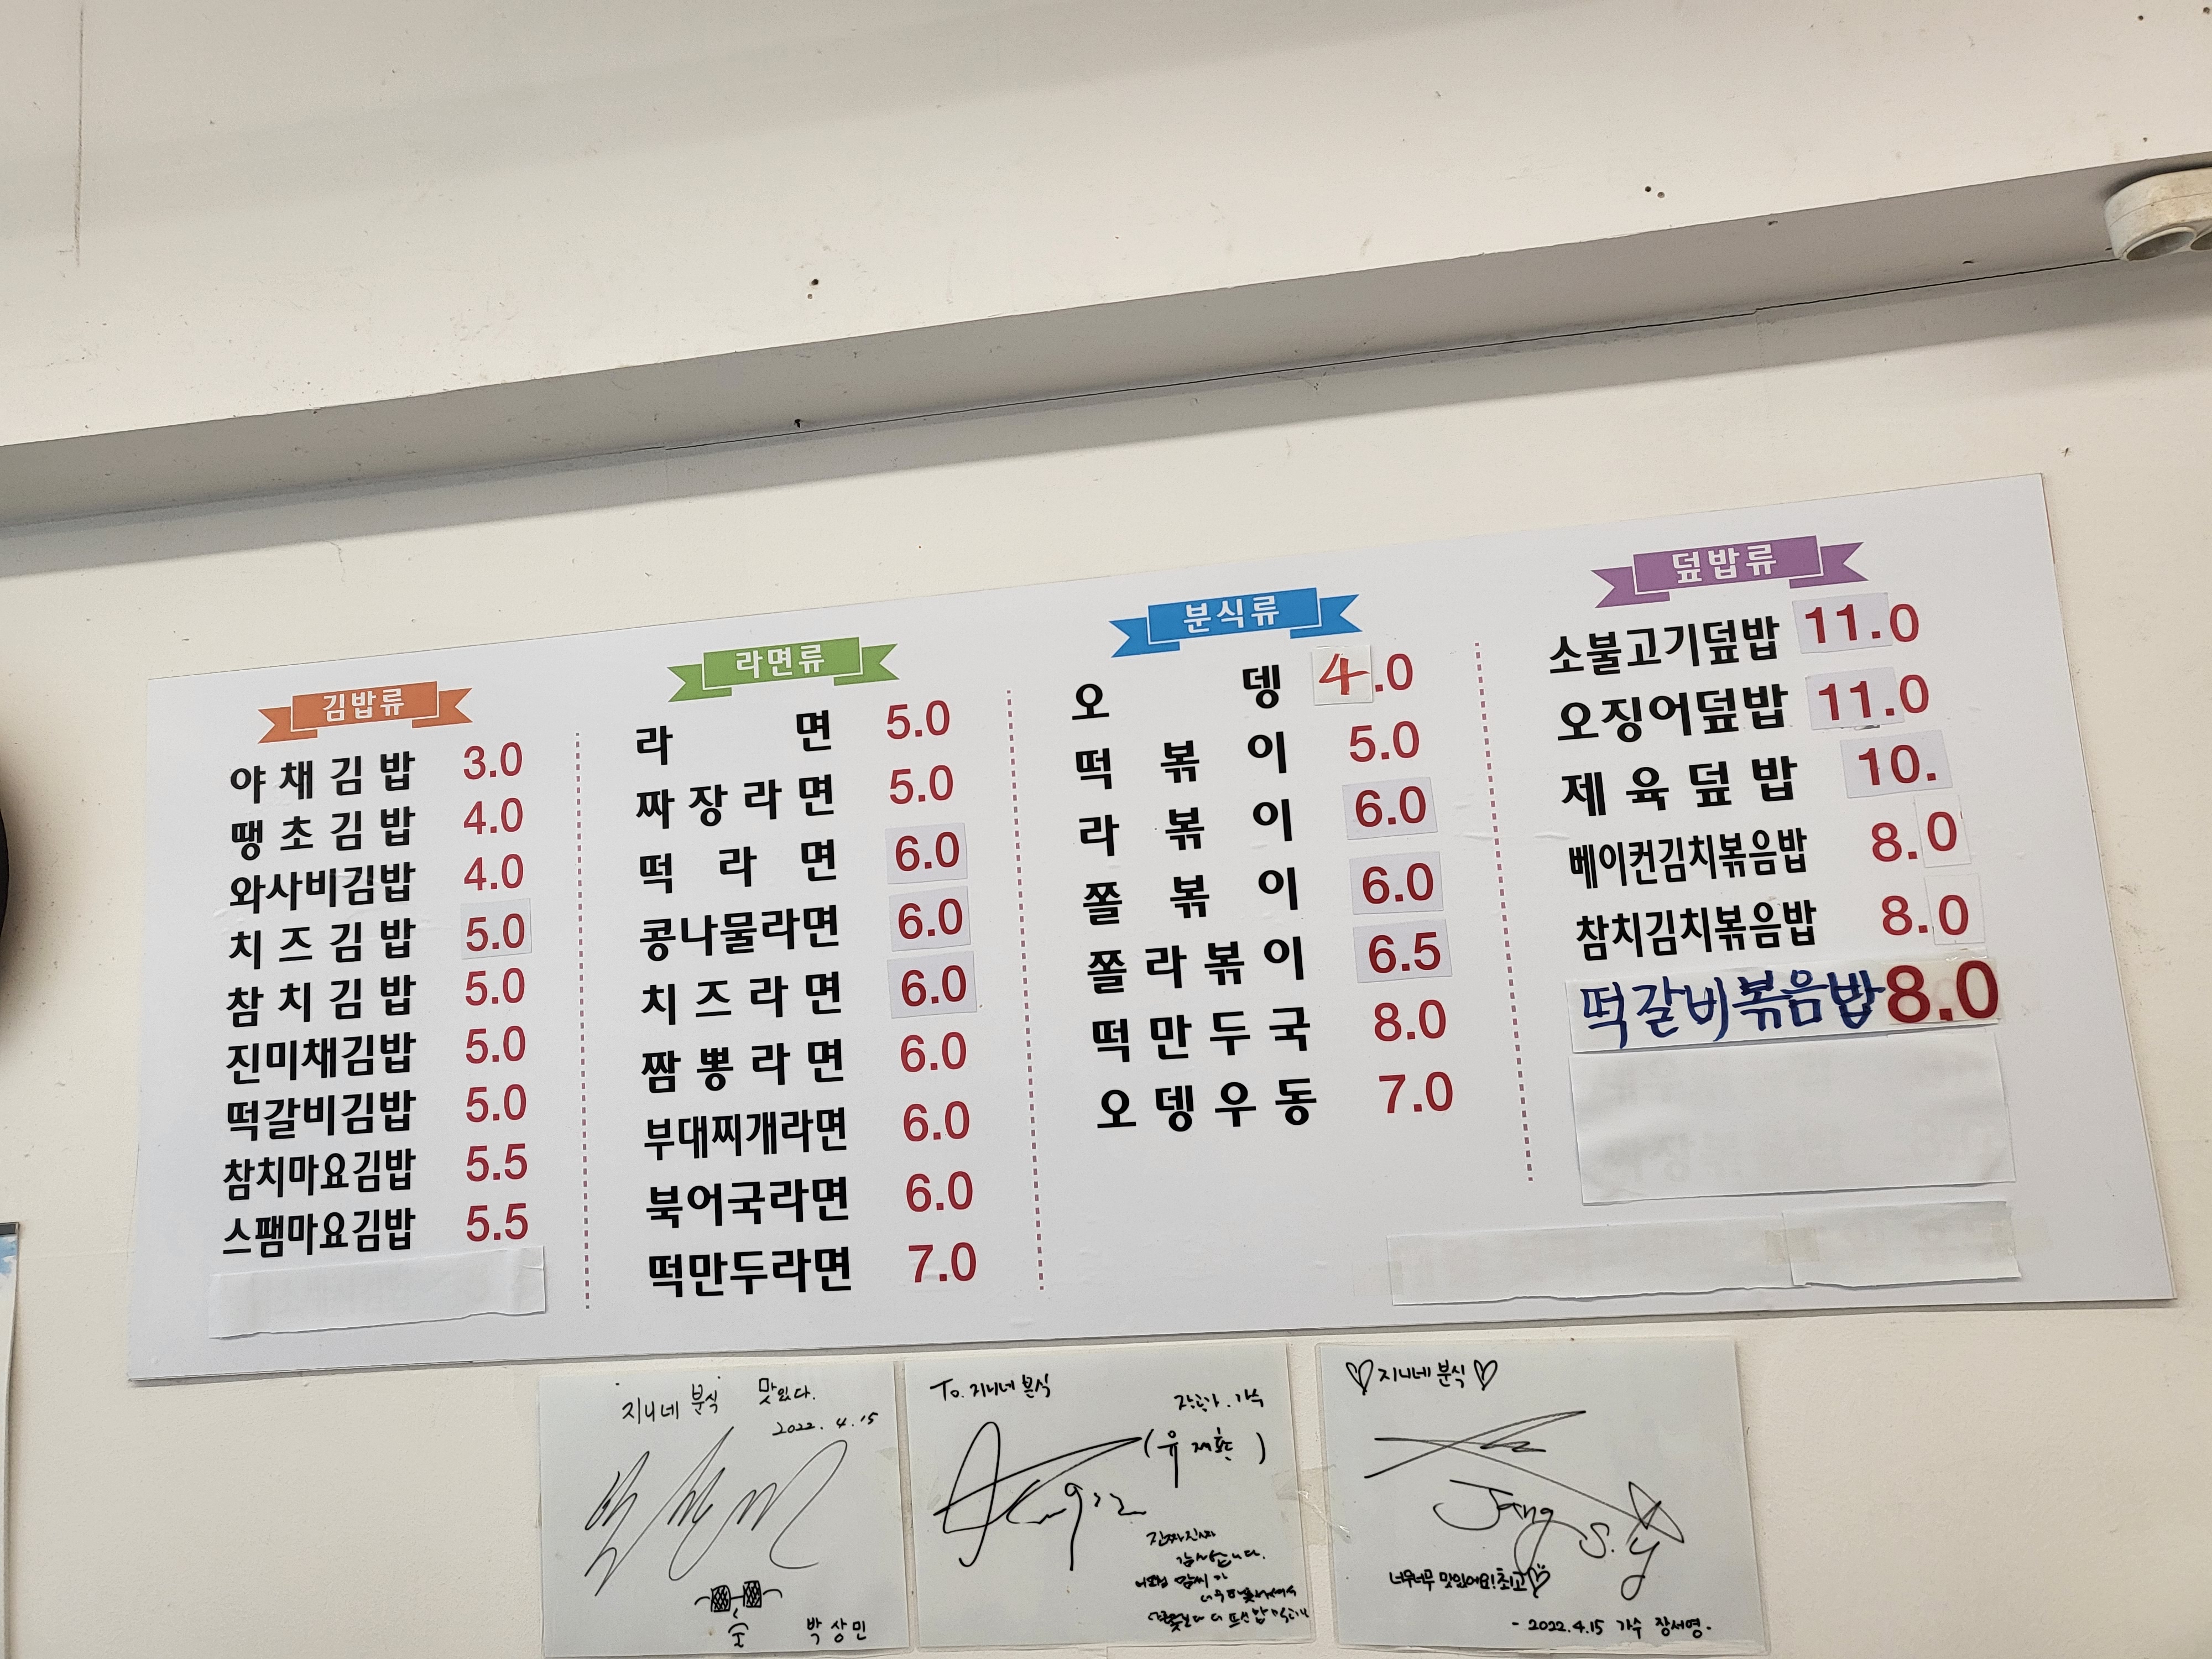 김밥류
야채김밥 3.0
땡초김밥 4.0
와사비김밥 4.0
치즈김밥 5.0
참치김밥 5.0
진미채김밥 5.0
떡갈비김밥 5.0
참치마요김밥 5.5
스팸마요김밥 5.5
라면류
라면 5.0
짜장라면 5.0
떡라면 6.0
콩나물라면 6.0
치즈라면 6.0
짬뽕라면 6.0
부대찌개라면 6.0
북어국라면 6.0
떡만두라면 7.0
분식류
오뎅 4.0
떡볶이 5.0
라볶이 6.0
쫄볶이 6.0
쫄라볶이 6.5
떡만두국 8.0
오뎅우동 7.0
덮밥류
소불고기덮밥 11.0
오징어덮밥 11.0
제육덮밥 10.
베이컨김치볶음밥 8.0
참치김치볶음밥 8.0
떡갈비볶음밥 8.0
지니네 분식 맛있다.
2022. 4. 15
박상민
To. 지니네 분식
가수
진짜진짜
감사합니다.
♡지니네 분식♡
Jang S.y
너무너무 맛있어요! 최고♡
- 2022.4.15 가수 장서영 -